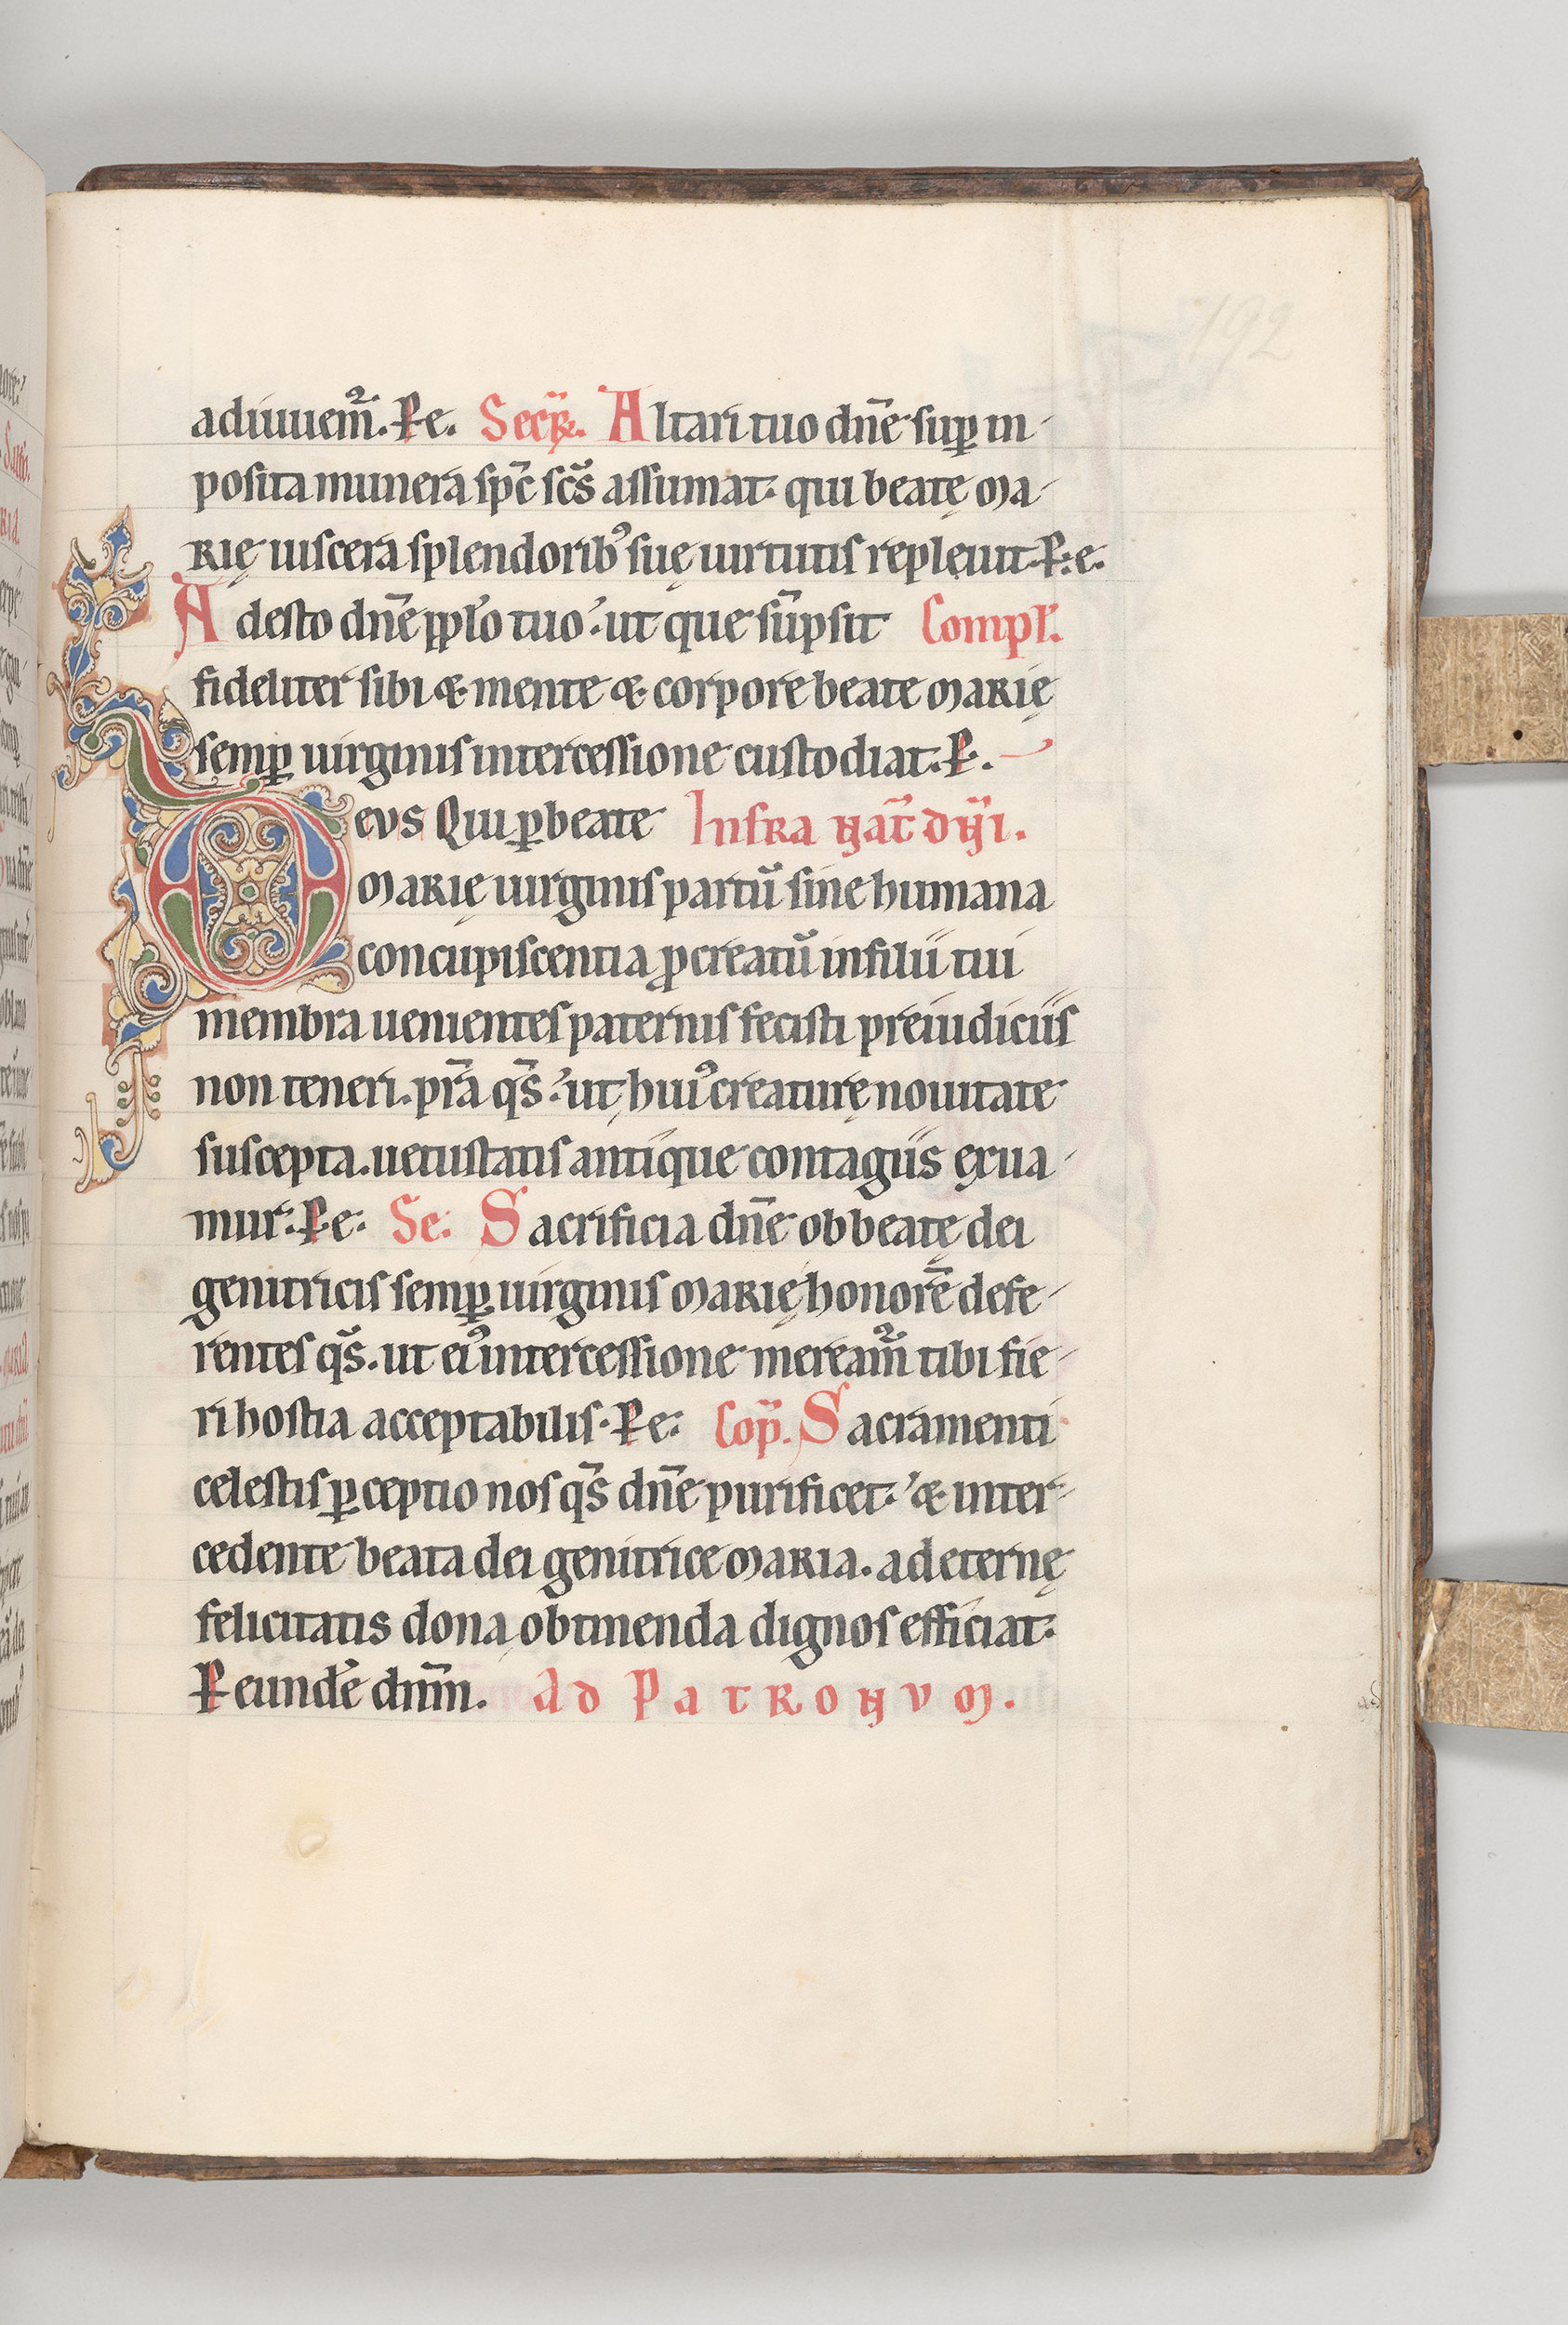 192
adiuuem̃. Pe. Secr̃. Altari tuo dñe sup̱ in
posita munera sp̄c sc̄s assumat. qui beatę Ma
Rię uiscera splendorib᾽ suę uirtutis repleuit. P. e.
Adesto dñe pp̱lo tuo. ut que sūpsit Compl̃.
fideliter sibi & mente & corpore beate MaRię
semp̱ uirginis intercessione custodiat. P.
Devs Qui p̱ beate Infra nat̄ dñi.
MaRię uirginis partū sine humana
concupiscentia ꝓcreatū in filii tui
membra uenientes paternis fecisti preiudiciis
non teneri. pr̄a qs̄. ut hui᾽ creaturę nouitate
suscepta. uetustatis antique contagiis exua
mur. Pe. Se. Sacrificia dñe ob beatę dei
genitricis semp̱ uirginis MaRię honorē defe
rentes qs̄. ut ei᾽ intercessione meream̃ tibi fie
ri hostia acceptabilis. Pe. Cop̄. Sacramenti
celestis p̱ceptio nos qs̄ dñe purificet. & inter
cedente beata dei genitrice MaRia. ad eternę
felicitatis dona obtinenda dignos efficiat.
P eundē dnm̄. Ad PatRonvm.